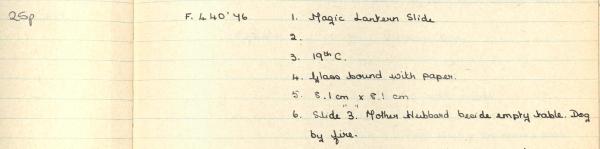 25p F. 440'76 1. Magic Lantern Slide
2.
3. 19th C.
4. Glass bound with paper.
5. 8.1 cm x 8.1 cm
6. Slide "3." Mother Hubbard beside empty table. Dog
by fire.